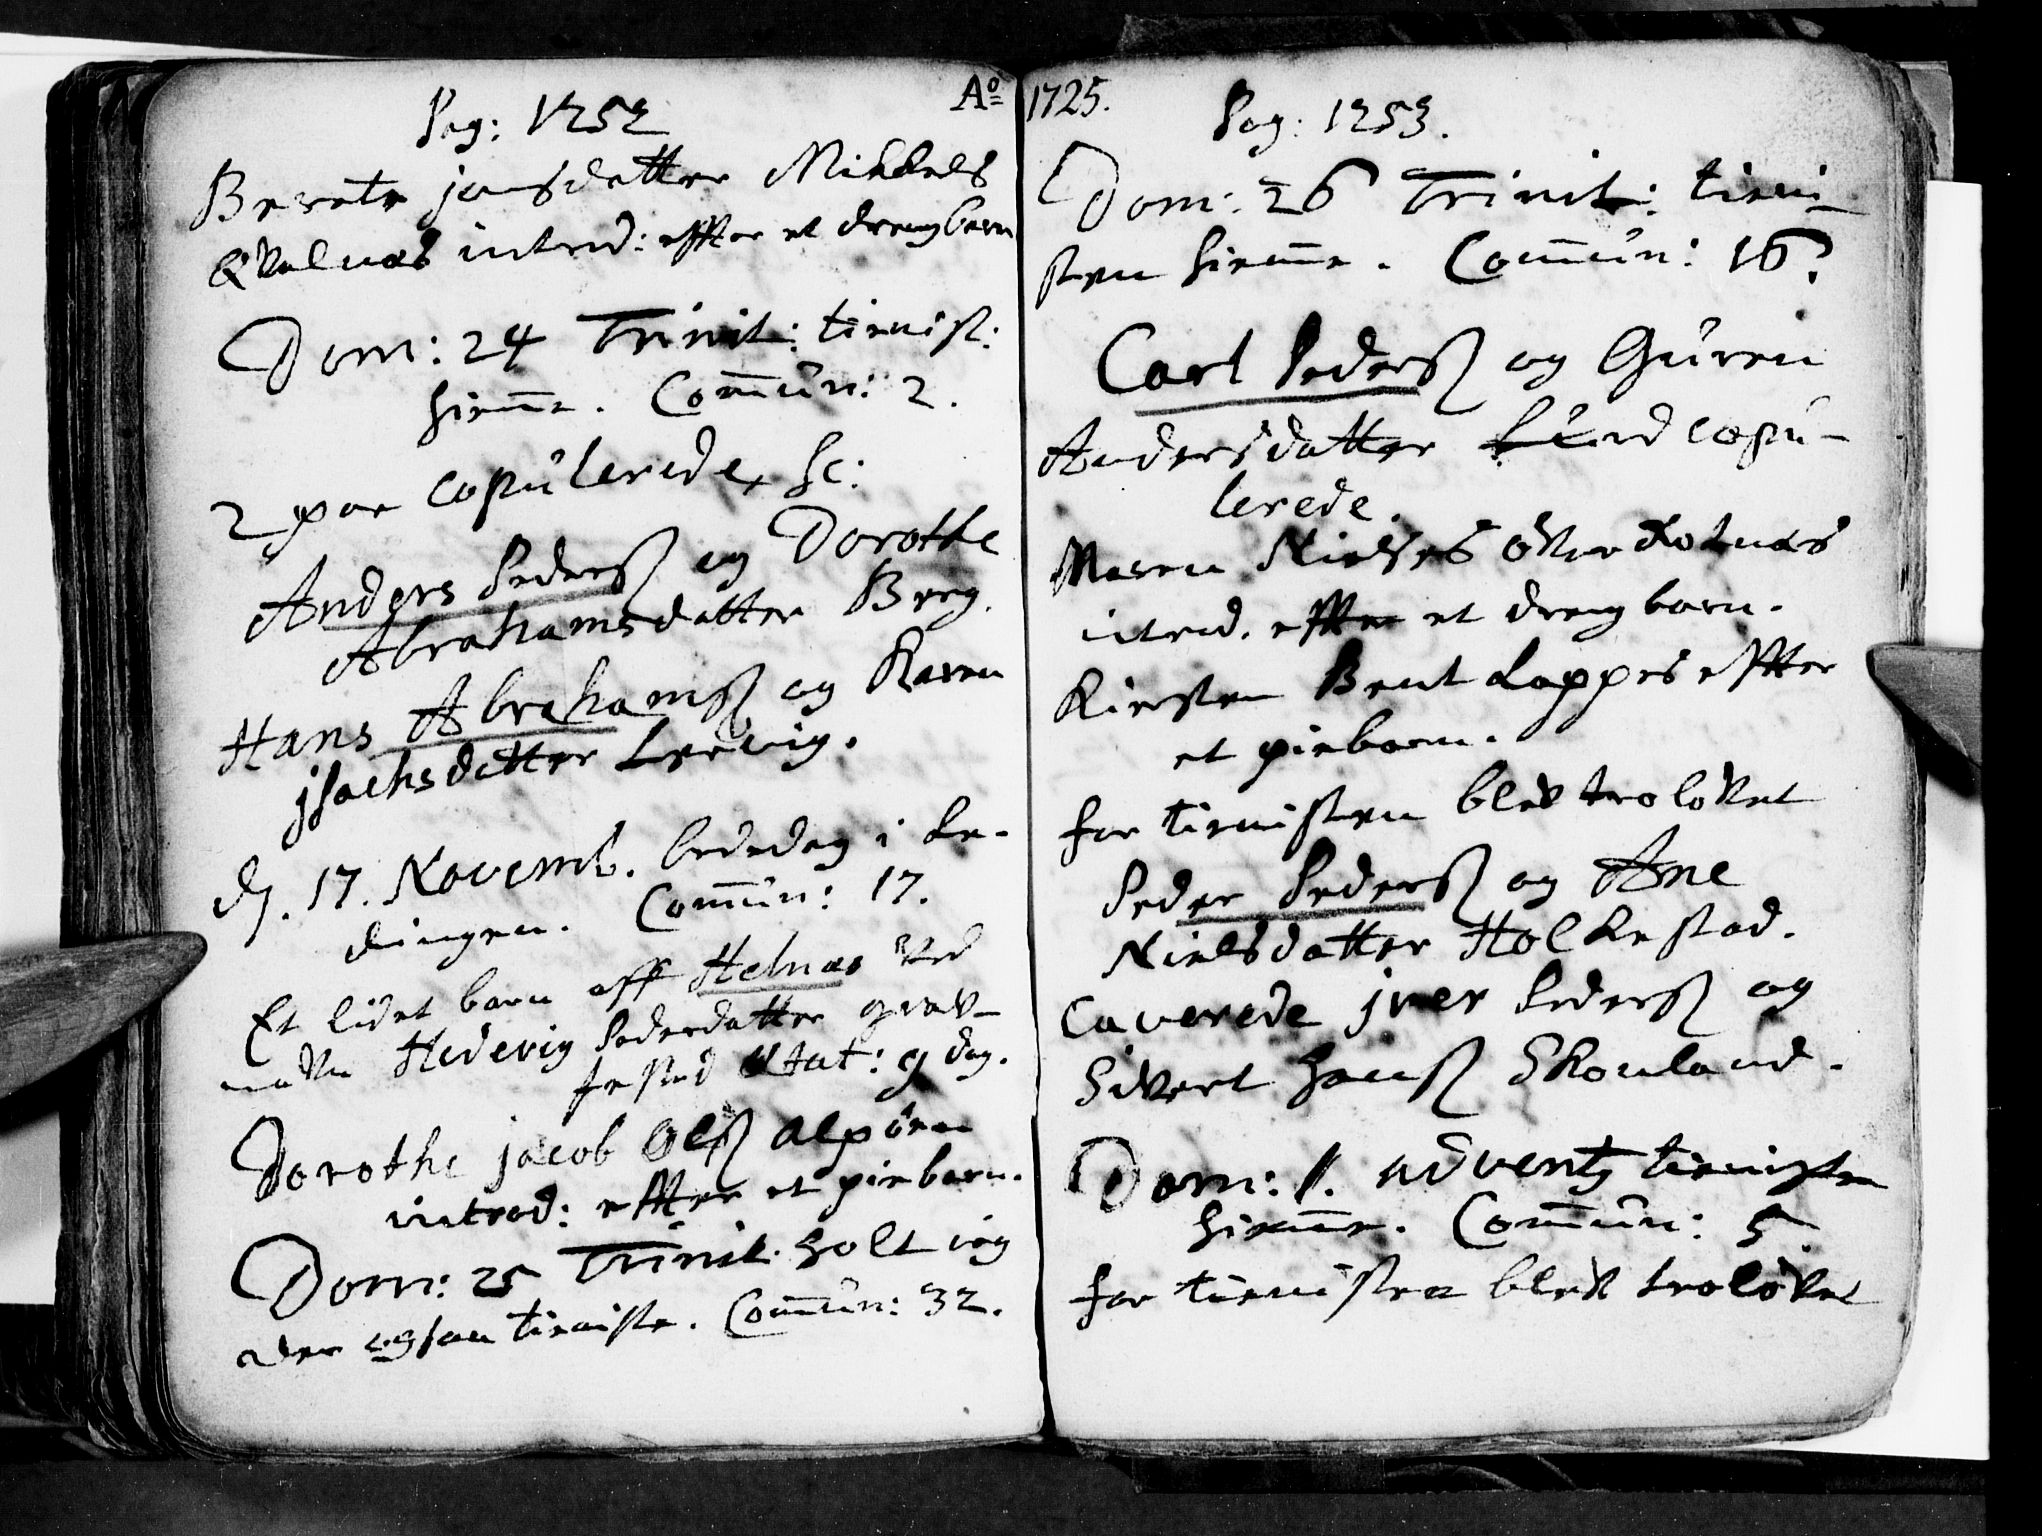 Pag: 1252
Berete jonsdatter Mikkels
Qvalnæs introd: effter et drengbarn
Dom: 24 Trinit: tienist:
hieme. Comun: 2.
2 par copulerede, sc:
Anders Pederß og Dorothe
Abrahamsdatter Berg.
Hans Abrahamß og Karen
jsachsdatter Lervig.
dj. 17. Novemb. bededag i Le-
dingen. Comun: 17.
Et lidet barn aff Helnæs ved
nafn Hedevig Pedersdatter grav-
fested Ætat: 9 dag.
Dorothe jacob Olß
introd: effter et piebarn.
Dom: 25 Trinit. holt ieg
der ogsaa tieniste. Comun: 32.
Ao 1725.
Pag: 1253.
Dom: 26 Trinit: tieni-
sten hieme. Comun: 16.
Carl Pederß og Guren
Andersdatter Lund copu-
lerede.
Maren Nielses
introd. effter et dreng barn.
Kiersten Bent Lappes effter
et piebarn.
for tienisten blev trolovet
Peder Pederß og Ane
Nielsdatter Holkestad.
Caverede jver Pederß og
Sivert Hanß Skouland.
Dom: 1. advents tienisten
hieme. Comun: 5
for tienisten blev trolovet